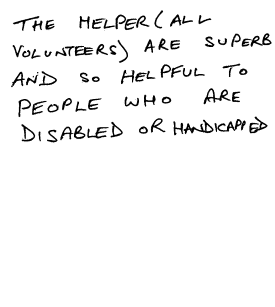 THE HELPER (ALL
VOLUNTEERS) ARE SUPERB
AND SO HELPFUL TO
PEOPLE WHO ARE
DISABLED OR HANDICAPPED